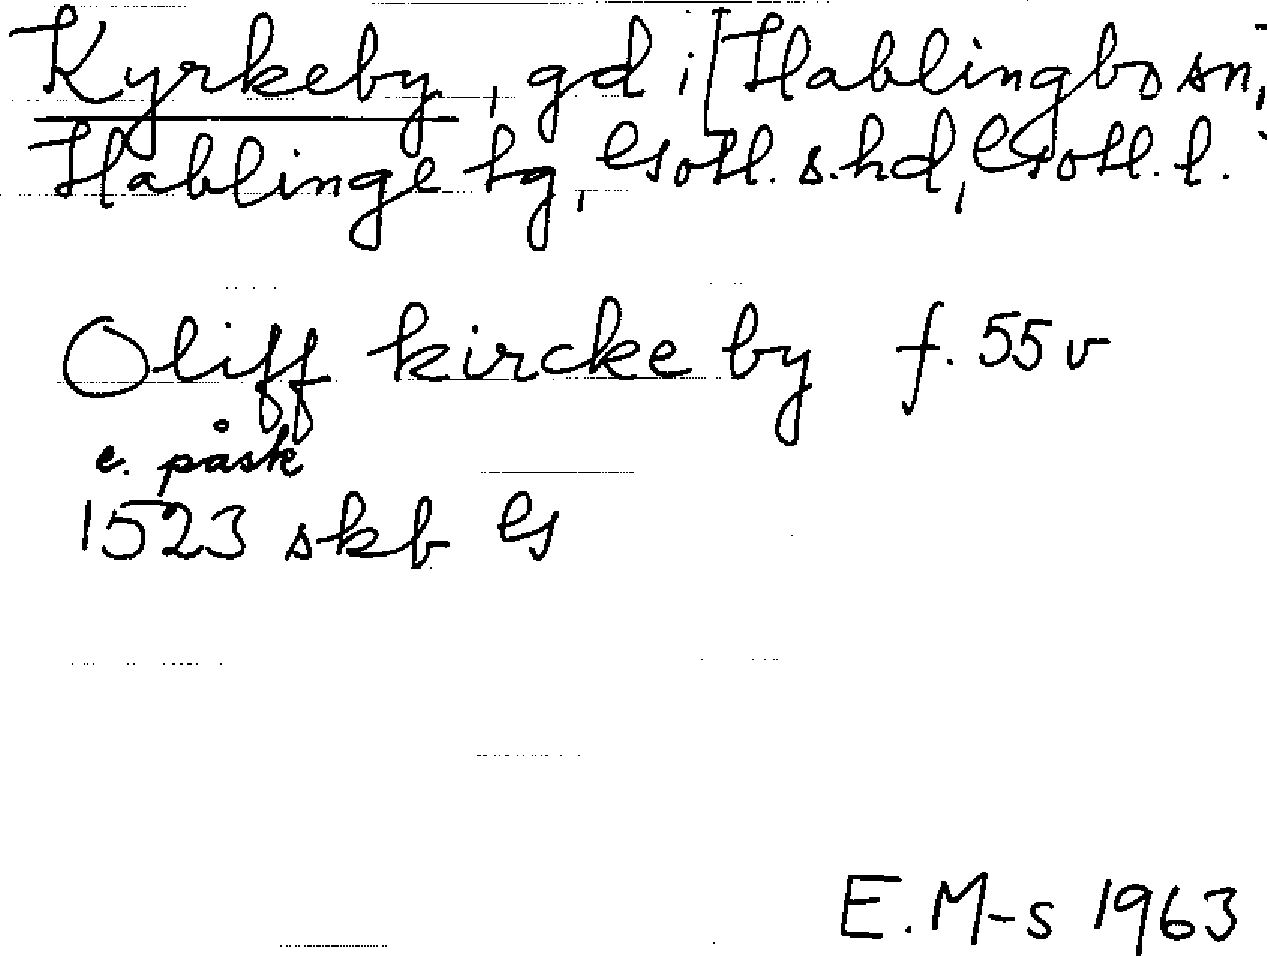 Kyrkeby, gd i [Hablingbo sn,]
Hablinge tg, Gotl. s. hd, Gotl. l.
Oliff kircke by f. 55 v
e. påsk
1523 skb G
E. M-s 1963